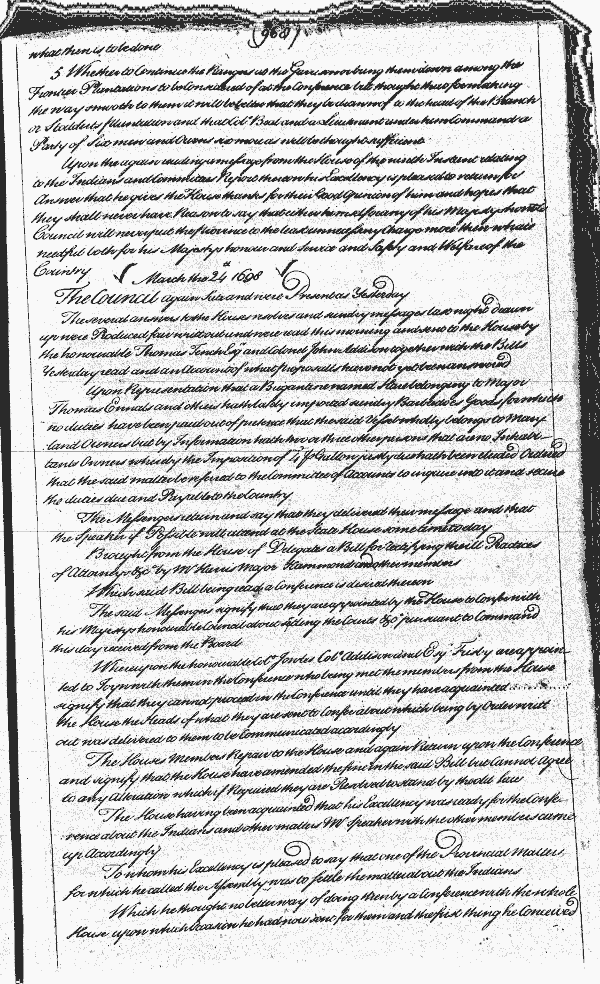 (968)
what then is to be done
5 Whether to Continue the Rangers as the Governor being them down among the
Frontier Plantations to be Considered of at the Conference but thought that so for making
the way smooth to them it will be better that they be drawn of to the head of the Branch
or Stodderts Plantation and that Col: Beal and a Lieutenant under him Command a
Party of Six men and Owens six more as will be thought sufficient
Upon the again reading a message from the House of the ninth Instant relating
to the Indians and Committees Report thereon his Excellency is pleased to return for
Answer that he gives the House thanks for their Good Opinion of him and hopes that
they shall never have Reason to say that either himself or any of his Majestys honoble
Council will never put the Province to the least unnecessary Charge more then what is
needful both for his Majestys honour and Service and Safety and Welfare of the
Country
March the 24th 1698
The Council again Sate and were Present as Yesterday
The several answers to the House resolves and sundry messages last night drawn
up were Produced fair writ out and were read this morning and sent to the House by
the honourable Thomas Tench Esqr and Colonel John Addison together with the Bills
Yesterday read and an Account of what proposalls have not yet been answered
Upon Representation that a Brigantine named Hare belonging to Major
Thomas Ennals and others hath lately imported sundry Barbados Goods for which
no duties have been paid out of pretence that the said Vessel wholly belongs to Mary
land Owners but by Information hath two or three other persons that are no Inhabi
tants Owners whereby the Imposition of 4d p Gallon justly due hath been eluded Ordered
that the said matter be referred to the Committee of Accounts to inquire into it and secure
the duties due and Payable to the Country
The Messengers return and say that they delivered their message and that
the Speaker if Possible will attend at the State House some time to day
Brought from the House of Delegates a Bill for rectifying the ill Practices
of Attorneys &c by Mr Harris Major Hammond and other members
Which said Bill being read a Conference is desired thereon
The said Messengers signify that they are appointed by the House to Confer with
his Majestys honourable Council about Setling the Courts &c pursuant to Command
this day received from the Board
Whereupon the honourable Col: Jowles Col: Addison and Esqr Frisby are appoin
ted to Joyn with them in the Conference who being met the members from the House
signify that they cannot proceed in the Conference until they have acquainted
the House the Heads of what they are sent to Confer about which being by Order writt
out was delivered to them to be Communicated accordingly
The House Members Repair to the House and again Return upon the Conference
and signify that the House have amended the fine in the said Bill but Cannot Agree
to any Alteration which if Required they are Resolved to stand by the old law
The House having been acquainted that his Excellency was ready for the Confe-
rence about the Indians and other matters Mr Speaker with the other members came
up Accordingly
To whom his Excellency is pleased to say that one of the Provincial Matters
for which he called the Assembly was to settle the matter about the Indians
Which he thought no better way of doing then by a Conference with the whole
House upon which Occasion he had now sent for them and the first thing he Conceived